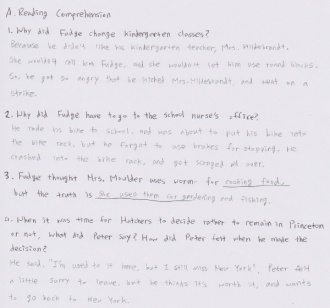 A. Reading Comprehension
1. Why did Fudge change kindergarten classes?
Because he didn't like his kindergarten teacher, Mrs. Hildebrandt.
She wouldn't call him Fudge, and she wouldn't let him use round blocks.
So, he got so angry that he kicked Mrs. Hildebrandt, and went on a
strike.
2. Why did Fudge have to go to the school nurse's office?
He rode his bike to school, and was about to put his bike into
the bike rack, but he forgot to use brakes for stopping. He
crashed into the bike rack, and got scraped all over.
3. Fudge thought Mrs. Moulder uses worms for cooking food,
but the truth is she uses them for gardening and fishing.
4. When it was time for Hatchers to decide rather to remain in Princeton
or not, what did Peter say? How did Peter felt when he made the
decision?
He said, "I'm used to it here, but I still miss New York". Peter felt
a little sorry to leave, but he thinks it's worth it, and wants
to go back to New York.